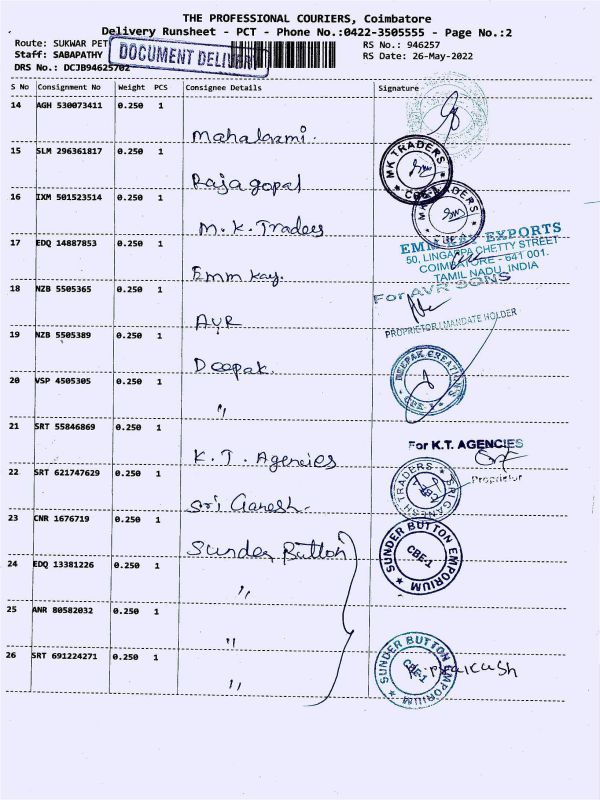 THE PROFESSIONAL COURIERS, Coimbatore
Delivery Runsheet - PCT - Phone No.:0422-3505555 - Page No.:2
Route: SUKWAR PET
RS No.: 946257
Staff: SABAPATHY
DOCUMENT DELIVERY
RS Date: 26-May-2022
DRS No.: DCJB94625702
S No Consignment No Weight PCS Consignee Details Signature
14 AGH 530073411 0.250 1
Mahalaxmi.
15 SLM 296361817 0.250 1
MK TRADERS
CBE-1
Rajagopal
16 IXM 501523514 0.250 1
MK TRADERS
M.K. Traders
17 EDQ 14887853 0.250 1
EMM KAY EXPORTS
50, LINGAPPA CHETTY STREET
COIMBATORE - 641 001.
TAMIL NADU, INDIA
Emm Kay.
18 NZB 5505365 0.250 1
For AVR SONS
AVR
PROPRIETOR / MANDATE HOLDER
19 NZB 5505389 0.250 1
Deepak.
DEEPAK CREATIONS
20 VSP 4505305 0.250 1
"
21 SRT 55846869 0.250 1
For K.T. AGENCIES
K.T. Agencies
Proprietor
22 SRT 621747629 0.250 1
SRI GANESH TRADERS
Sri Ganesh.
23 CNR 1676719 0.250 1
Sunder Button
SUNDER BUTTON EMPORIUM
CBE-1
24 EDQ 13381226 0.250 1
"
25 ANR 80582032 0.250 1
"
26 SRT 691224271 0.250 1
SUNDER BUTTON EMPORIUM
CBE-1
"